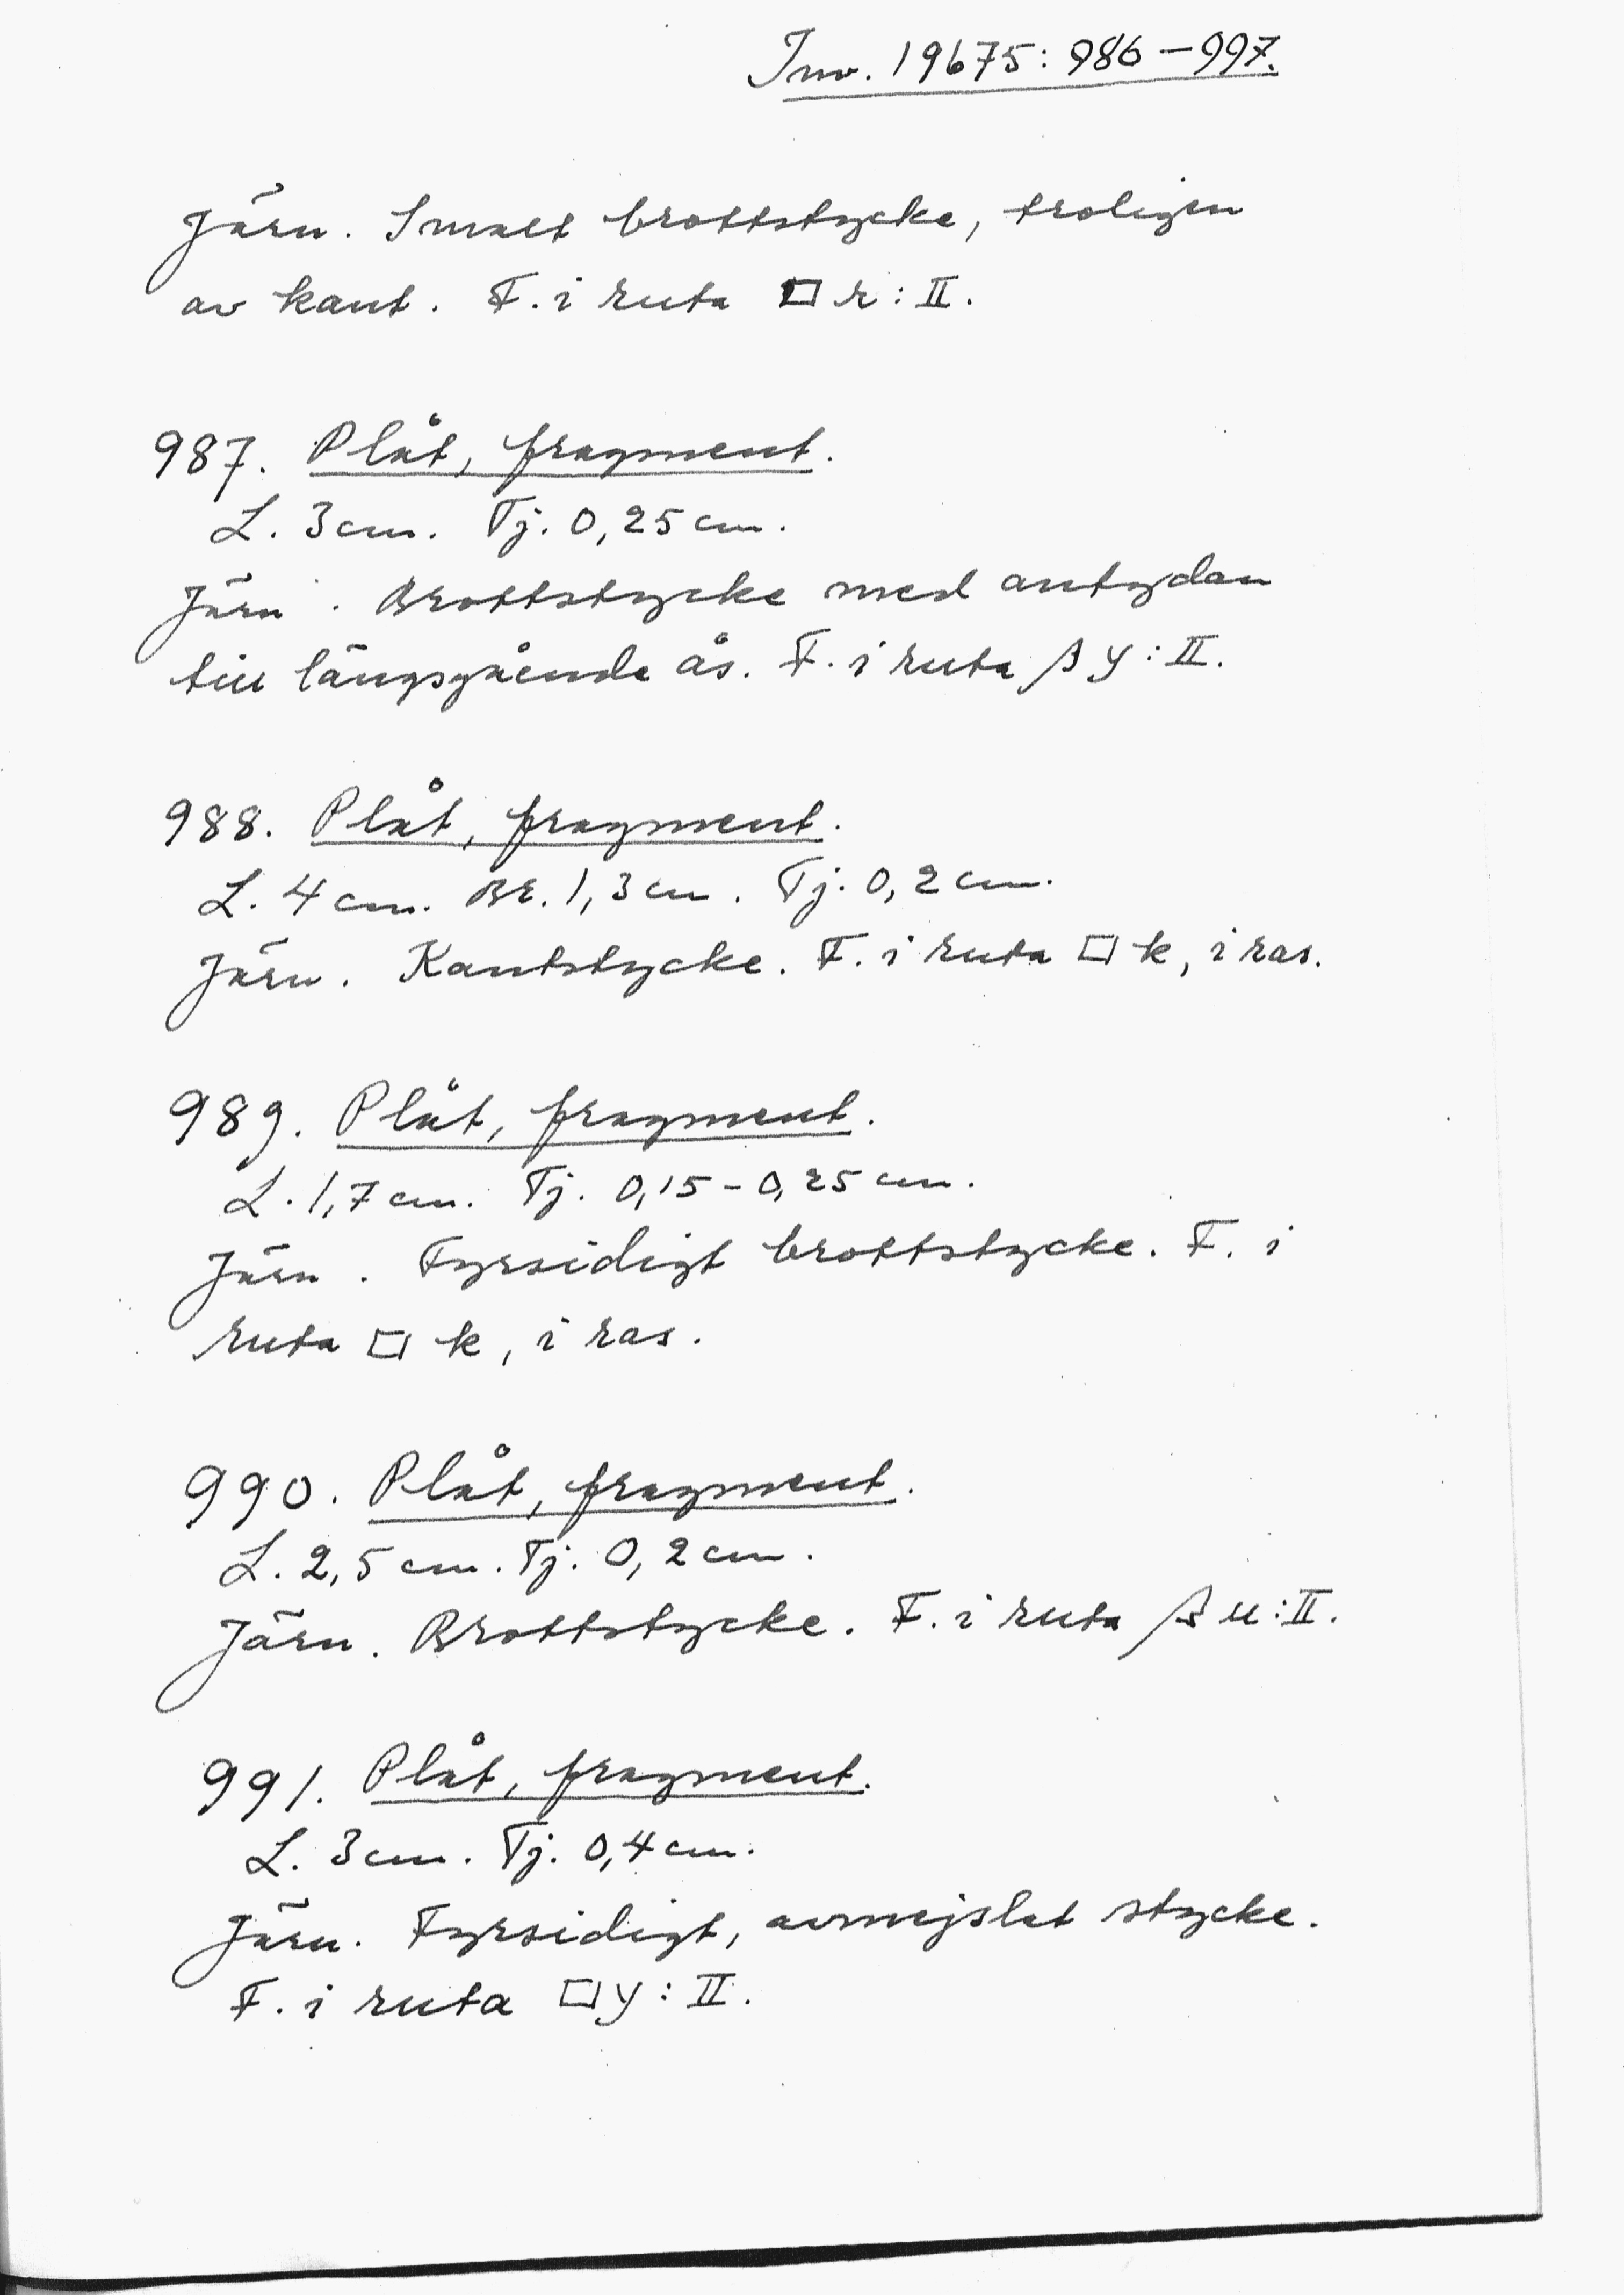 Inv. 19675: 986–997.
Järn. Smalt brottstycke, troligen
av kant. F. i ruta □ r: II.
987. Plåt, fragment.
L. 3 cm. Tj. 0,25 cm.
Järn. Brottstycke med antydan
till längsgående ås. F. i ruta β y: II.
988. Plåt, fragment.
L. 4 cm. Br. 1,3 cm. Tj. 0,2 cm.
Järn. Kantstycke. F. i ruta □ k, i ras.
989. Plåt, fragment.
L. 1,7 cm. Tj. 0,15–0,25 cm.
Järn. Fyrsidigt brottstycke. F. i
ruta □ k, i ras.
990. Plåt, fragment.
L. 2,5 cm. Tj. 0,2 cm.
Järn. Brottstycke. F. i ruta β u: II.
991. Plåt, fragment.
L. 3 cm. Tj. 0,4 cm.
Järn. Fyrsidigt, avmejslat stycke.
F. i ruta □ y: II.